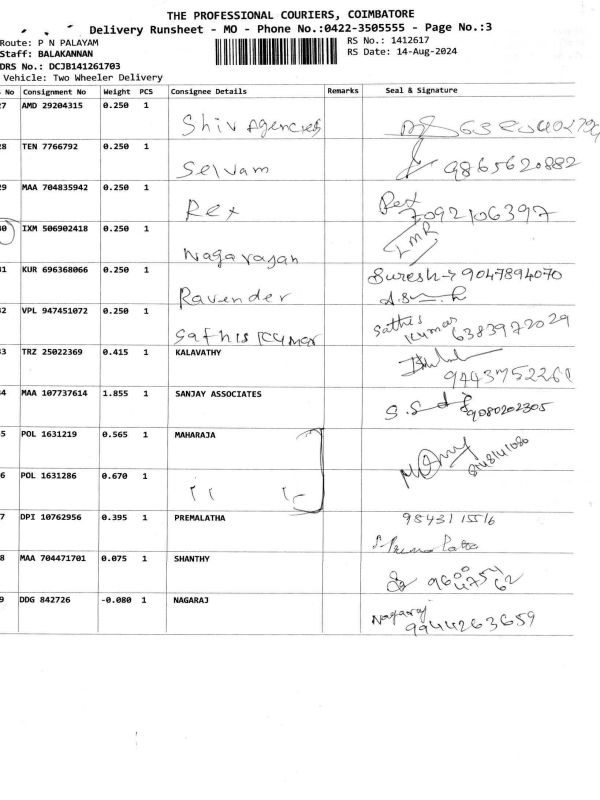 THE PROFESSIONAL COURIERS, COIMBATORE
Delivery Runsheet - MO - Phone No.:0422-3505555 - Page No.:3
Route: P N PALAYAM
RS No.: 1412617
Staff: BALAKANNAN
RS Date: 14-Aug-2024
DRS No.: DCJB141261703
Vehicle: Two Wheeler Delivery
No Consignment No Weight PCS Consignee Details Remarks Seal & Signature
27 AMD 29204315 0.250 1
Shiv Agencies
28 TEN 7766792 0.250 1
Selvam 9865620882
29 MAA 704835942 0.250 1
Rex Rex 7092106397
30 IXM 506902418 0.250 1
Nagarajan LMR
31 KUR 696368066 0.250 1 Suresh → 9047894070
Ravender
32 VPL 947451072 0.250 1
Sathis Kumar Sathis Kumar 6383972029
33 TRZ 25022369 0.415 1 KALAVATHY
9443752261
34 MAA 107737614 1.855 1 SANJAY ASSOCIATES
9080202305
35 POL 1631219 0.565 1 MAHARAJA
36 POL 1631286 0.670 1
37 DPI 10762956 0.395 1 PREMALATHA
38 MAA 704471701 0.075 1 SHANTHY
39 DDG 842726 -0.080 1 NAGARAJ Nagaraj
9944263659